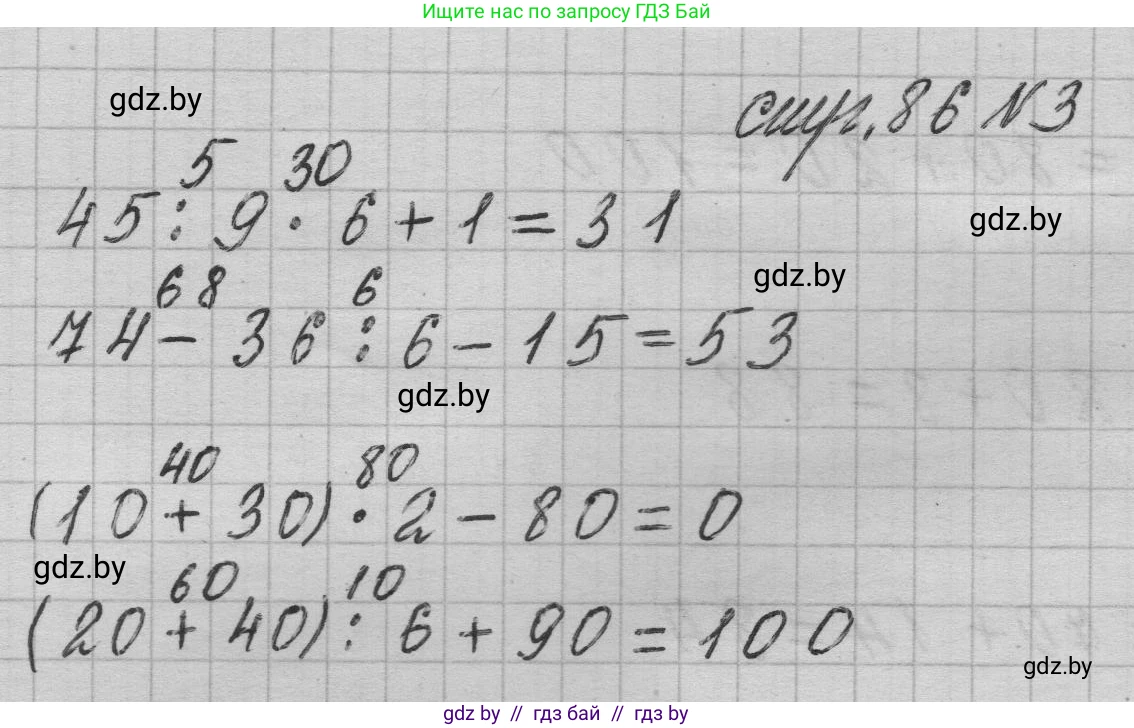 Ищите нас по запросу ГДЗ Бай
gdz.by
стр. 86 №3
5 30
45 : 9 · 6 + 1 = 31
gdz.by
68 6
gdz.by
74 - 36 : 6 - 15 = 53
gdz.by
40 80
(10 + 30) · 2 - 80 = 0
gdz.by
60 10
(20 + 40) : 6 + 90 = 100
gdz.by
gdz by // гдз бай // гдз by